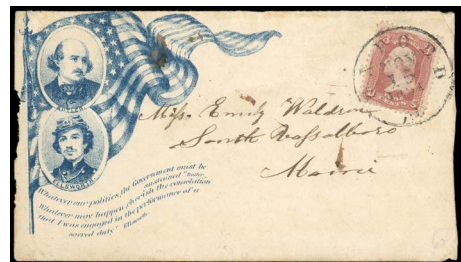 BUTLER
ELLSWORTH
Whatever our politics, the Government must be
sustained" Butler.
Whatever may happen, cherish the consolation
that I was engaged in the performance of a
sacred duty" Ellsworth.
Miss. Emily Waldron
South Vassalboro
Maine